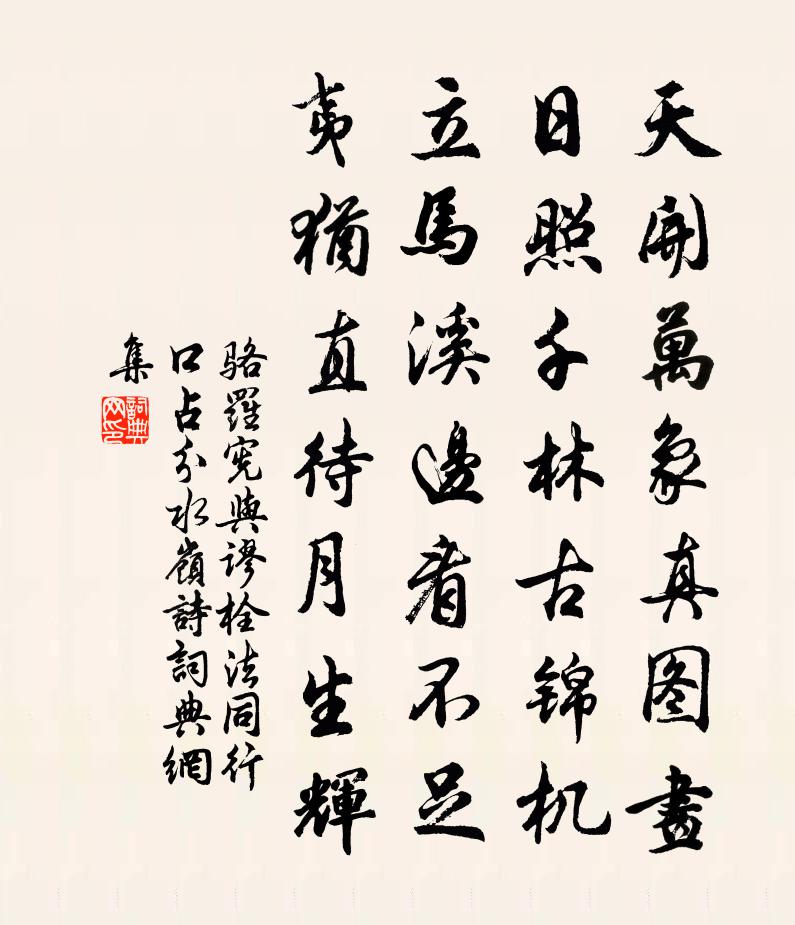 天開萬象真图畫
日照千林古锦机
立馬溪邊看不足
夷猶直待月生輝
骆羅宪與謬栓法同行
口占分水嶺詩詞典網
集
詞典网印